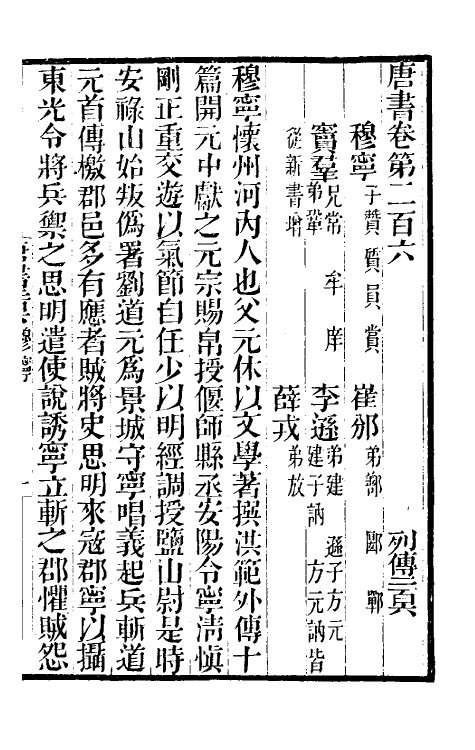 唐書卷第二百六　列傳一百六
穆寧子贊　質　員　賞　崔邠弟鄯　鄲　鄲
竇羣兄常　牟　弟鞏　庠　李遜弟建　遜子方元　建子訥　方元訥皆
從新書增　薛戎弟放
穆寧懷州河內人也父元休以文學著撰洪範外傳十
篇開元中獻之元宗賜帛授偃師縣丞安陽令寧清慎
剛正重交遊以氣節自任少以明經調授鹽山尉是時
安祿山始叛偽署劉道元為景城守寧唱義起兵斬道
元首傳檄郡邑多有應者賊將史思明來寇郡寧以攝
東光令將兵禦之思明遣使說誘寧立斬之郡懼賊怨